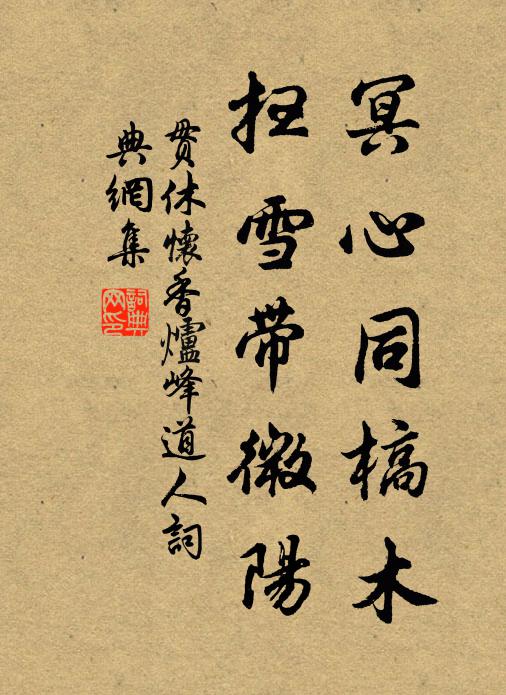 冥心同槁木
扫雪带微陽
贯休懷香爐峰道人詞
典網集
詞典
网印